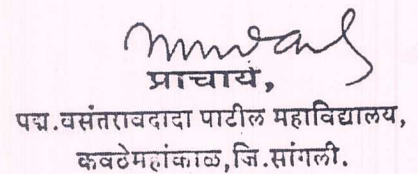 प्राचार्य,
पद्म.वसंतरावदादा पाटील महाविद्यालय,
कवठेमहांकाळ,जि.सांगली.